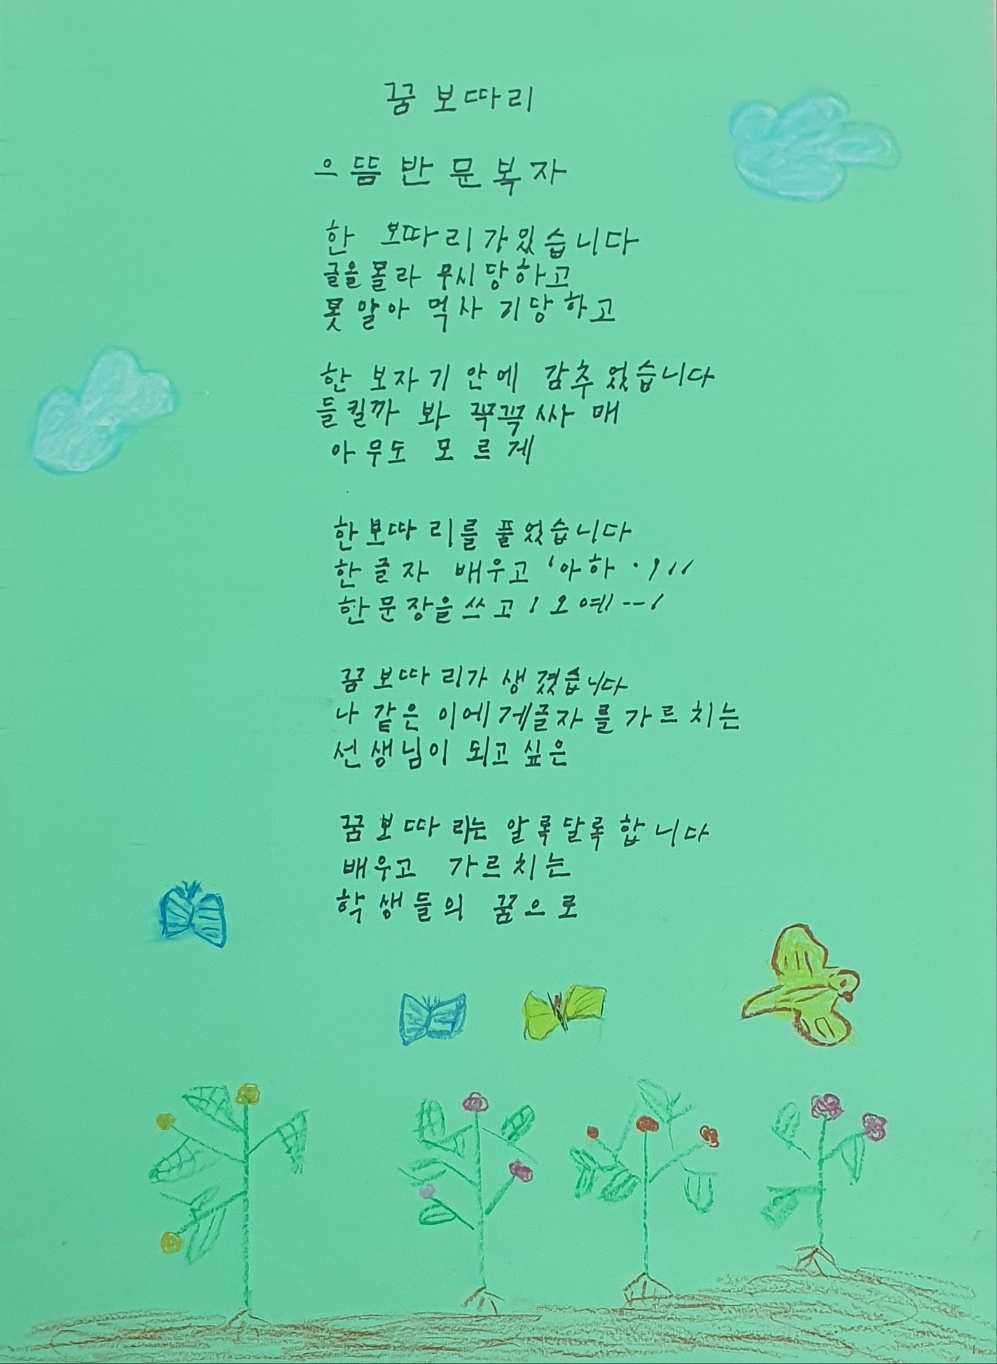 꿈 보따리
으뜸반 문복자
한 보따리가있습니다
글을몰라 무시당하고
못알아 먹사기당하고
한 보자기 안에 감추었습니다
들킬까 봐 꼭꼭 싸매
아무도 모르게
한보따리를 풀었습니다
한글자 배우고 '아하·!//
한문장을쓰고 ! 오예--!
꿈보따리가 생겼습니다
나 같은 이에게글자를 가르치는
선생님이 되고 싶은
꿈보따리는 알록달록합니다
배우고 가르치는
학생들의 꿈으로